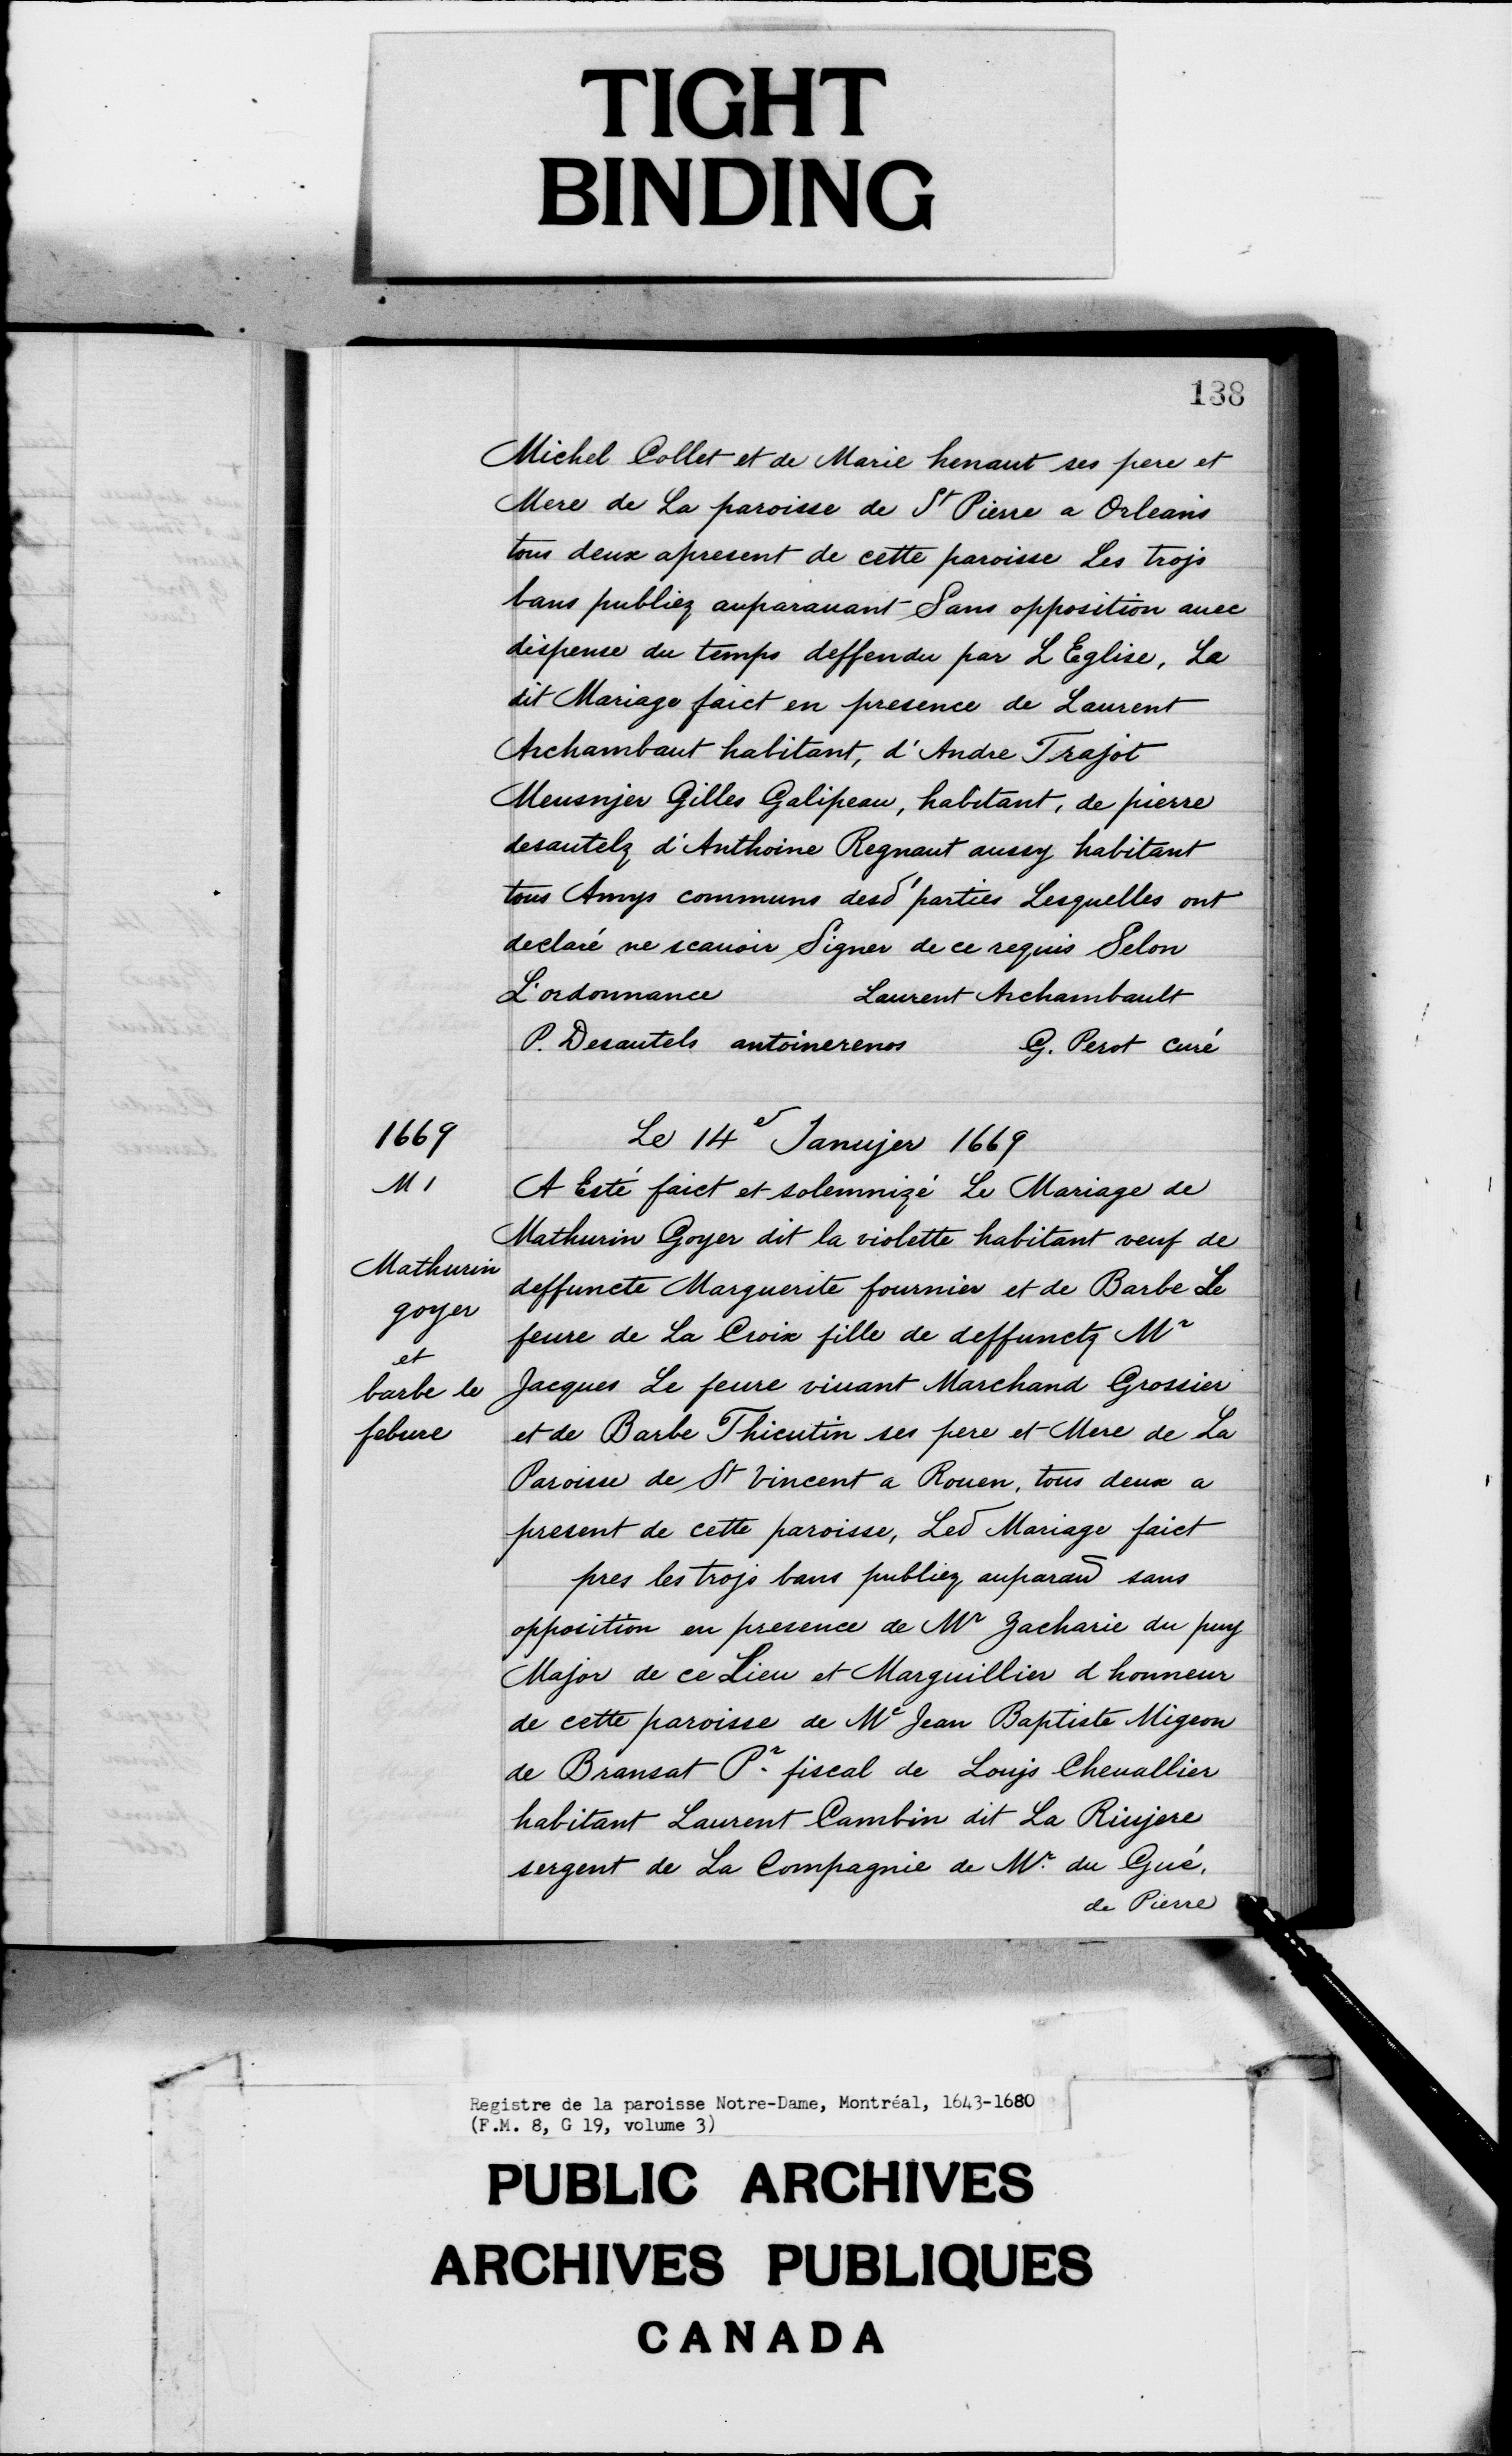 TIGHT
BINDING
138
Michel Collet et de Marie henaut ses pere et
Mere de La paroisse de St Pierre a Orleans
tous deux apresent de cette paroisse Les trojs
bans publiez auparauant Sans opposition auec
dispense du temps deffendu par L Eglise, La
dit Mariage faict en presence de Laurent
Archambaut habitant, d'Andre Trajot
Meusnjer Gilles Galipeau, habitant, de pierre
desautelz d'Anthoine Regnaut aussy habitant
tous Amys communs desd parties Lesquelles ont
declaré ne scauoir Signer de ce requis Selon
L'ordonnance Laurent Archambault
P. Desautels antoinerenos G. Perot curé
1669 Le 14e Janujer 1669
M 1
A Esté faict et solemnizé Le Mariage de
Mathurin Goyer dit la violette habitant veuf de
Mathurin
goyer
et
barbe le
febure
deffuncte Marguerite fournier et de Barbe Le
feure de La Croix fille de deffunctz Mr
Jacques Le feure viuant Marchand Grossier
et de Barbe Thicutin ses pere et Mere de La
Paroisse de St Vincent a Rouen, tous deux a
present de cette paroisse, Led Mariage faict
pres les trojs bans publiez auparau sans
opposition en presence de Mr Zacharie du puy
Major de ce Lieu et Marguillier d honneur
de cette paroisse de Me Jean Baptiste Migeon
de Bransat Pr. fiscal de Loujs Cheuallier
habitant Laurent Cambin dit La Riujere
sergent de La Compagnie de Mr. du Gué,
de Pierre
Registre de la paroisse Notre-Dame, Montréal, 1643-1680
(F.M. 8, G 19, volume 3)
PUBLIC ARCHIVES
ARCHIVES PUBLIQUES
CANADA